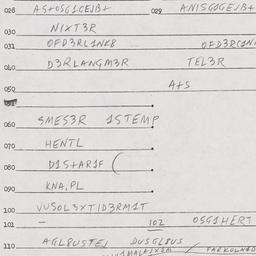 028 AS+OSG1CEJB+ 029 ANISGOGEJB+
030 NIXT3R
031 OFD3RL1NK8 OFD3RC1N
040 D3RLANGM3R TEL3R
050 A+S
060 SMES3R 1STEMP
070 HENTL
080 D1S+AR1F (
090 KNA.PL
100 VUSOL3XTID3RM1T
101 — 102 OSG1HERT
110 AGL8USTEJ DUSGL8US